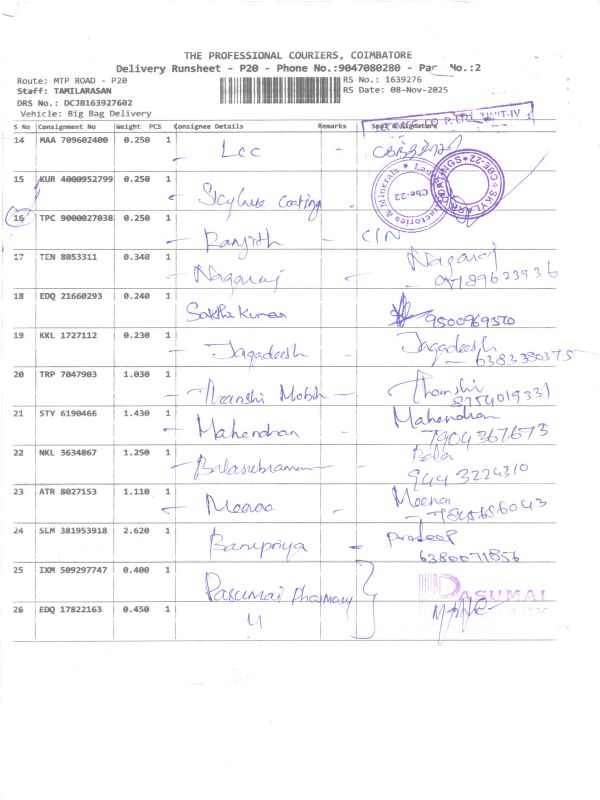 THE PROFESSIONAL COURIERS, COIMBATORE
Delivery Runsheet - P20 - Phone No.:9047080280 - Par No.:2
Route: MTP ROAD - P20 RS No.: 1639276
Staff: TAMILARASAN RS Date: 08-Nov-2025
DRS No.: DCJB163927602
Vehicle: Big Bag Delivery
S No Consignment No Weight PCS Consignee Details Remarks Seal & Signature
14 MAA 709602400 0.250 1 Lcc -
15 KUR 4000952799 0.250 1 Coating
Cbe-22
CBE-22 ★ SKYLARK
16 TPC 9000027038 0.250 1 - Ranjith - CIN
17 TEN 8053311 0.340 1 - Nagaraj - Nagaraj
18 EDQ 21660293 0.240 1 Sakthi Kumar 9500969510
19 KKL 1727112 0.230 1 - Jagadeesh - Jagadeesh
- 6383380375
20 TRP 7047903 1.030 1 - Thanshi Mobile - Thanshi
8754019331
21 STY 6190466 1.430 1 - Mahendran - Mahendran
7904367673
22 NKL 3634867 1.250 1 - Balasubramani - Bala
9443224310
23 ATR 8027153 1.110 1 - Meena - Meena
24 SLM 381953918 2.620 1 Banupriya - Pradeep
6380071856
25 IXM 509297747 0.400 1 Pasumai Pharmacy
PASUMAI
26 EDQ 17822163 0.450 1 "